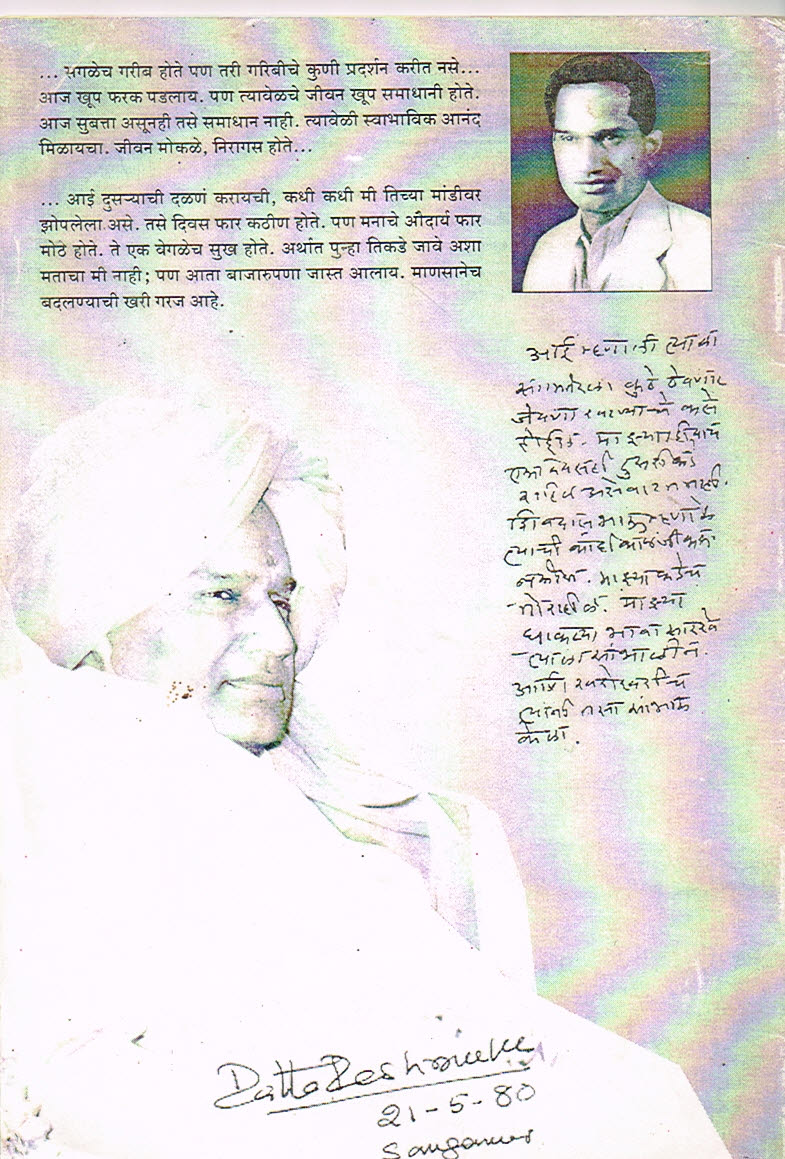 ... सगळेच गरीब होते पण तरी गरिबीचे कुणी प्रदर्शन करीत नसे...
आज खूप फरक पडलाय. पण त्यावेळचे जीवन खूप समाधानी होते.
आज सुबत्ता असूनही तसे समाधान नाही. त्यावेळी स्वाभाविक आनंद
मिळायचा. जीवन मोकळे, निरागस होते...
... आई दुसऱ्याची दळणं करायची, कधी कधी मी तिच्या मांडीवर
झोपलेला असे. तसे दिवस फार कठीण होते. पण मनाचे औदार्य फार
मोठे होते. ते एक वेगळेच सुख होते. अर्थात पुन्हा तिकडे जावे अशा
मताचा मी नाही; पण आता बाजारुपणा जास्त आलाय. माणसानेच
बदलण्याची खरी गरज आहे.
आई म्हणाली त्याला
संगमनेरला कुठे ठेवणार
जेवणा खाण्याचे कसे
होईल. माझ्याही
दुसरीकडे
त्याची
माझ्याकडेच
राहील. माझ्या
धाकट्या भावासारखे
त्याला सांभाळीन.
आणि खरोखरीच
त्यांनी तसा सांभाळ
केला.
Datta Deshmukh
21-5-80
Sangamner